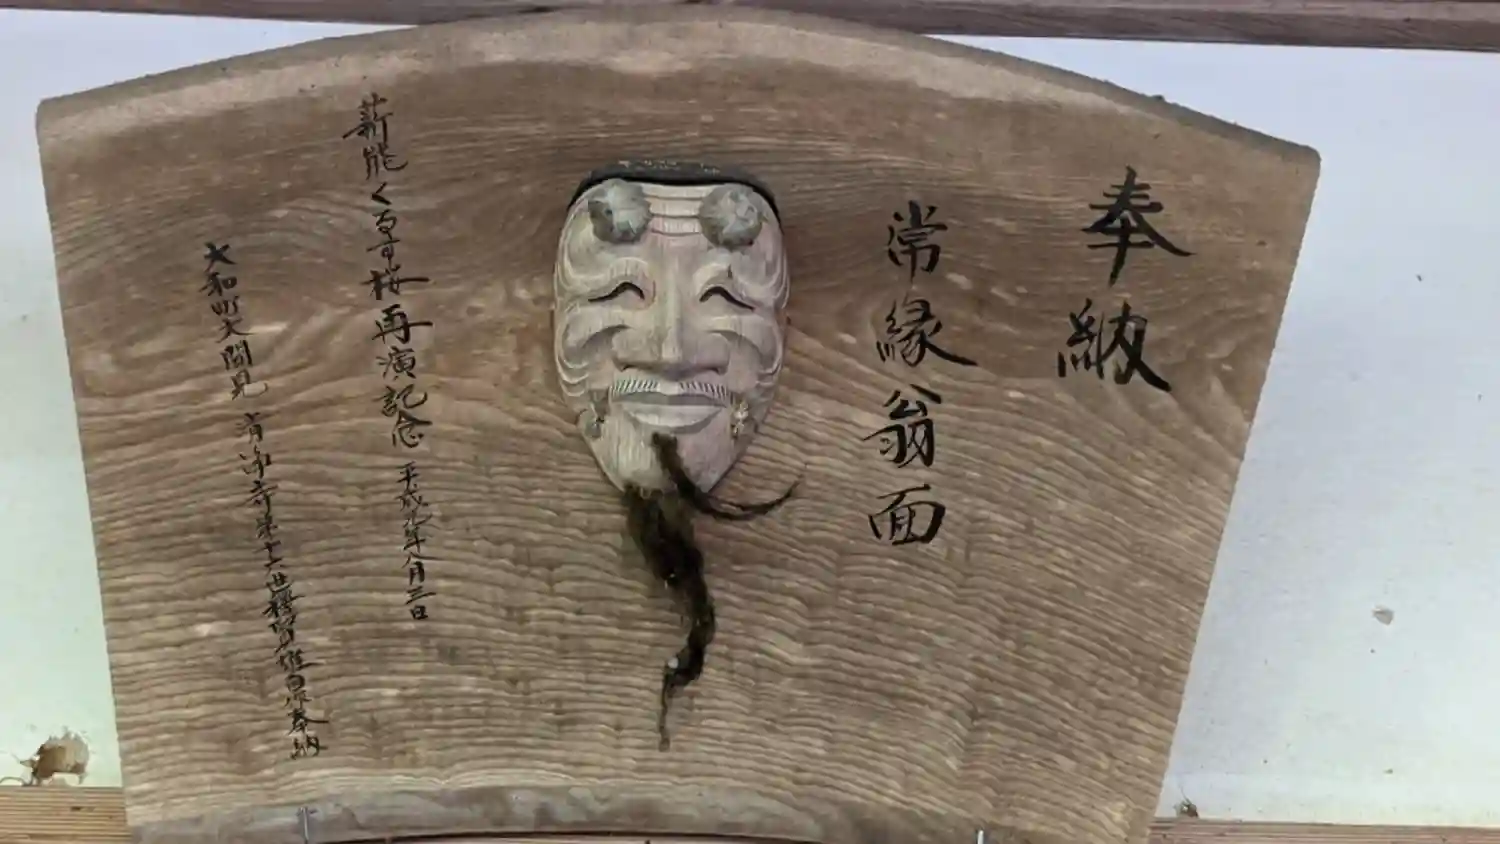 奉納
常縁翁面
薪能くるす桜再演記念 平成元年八月三日
大和町大間見 清浄寺第十六世釋賢雄 奉納